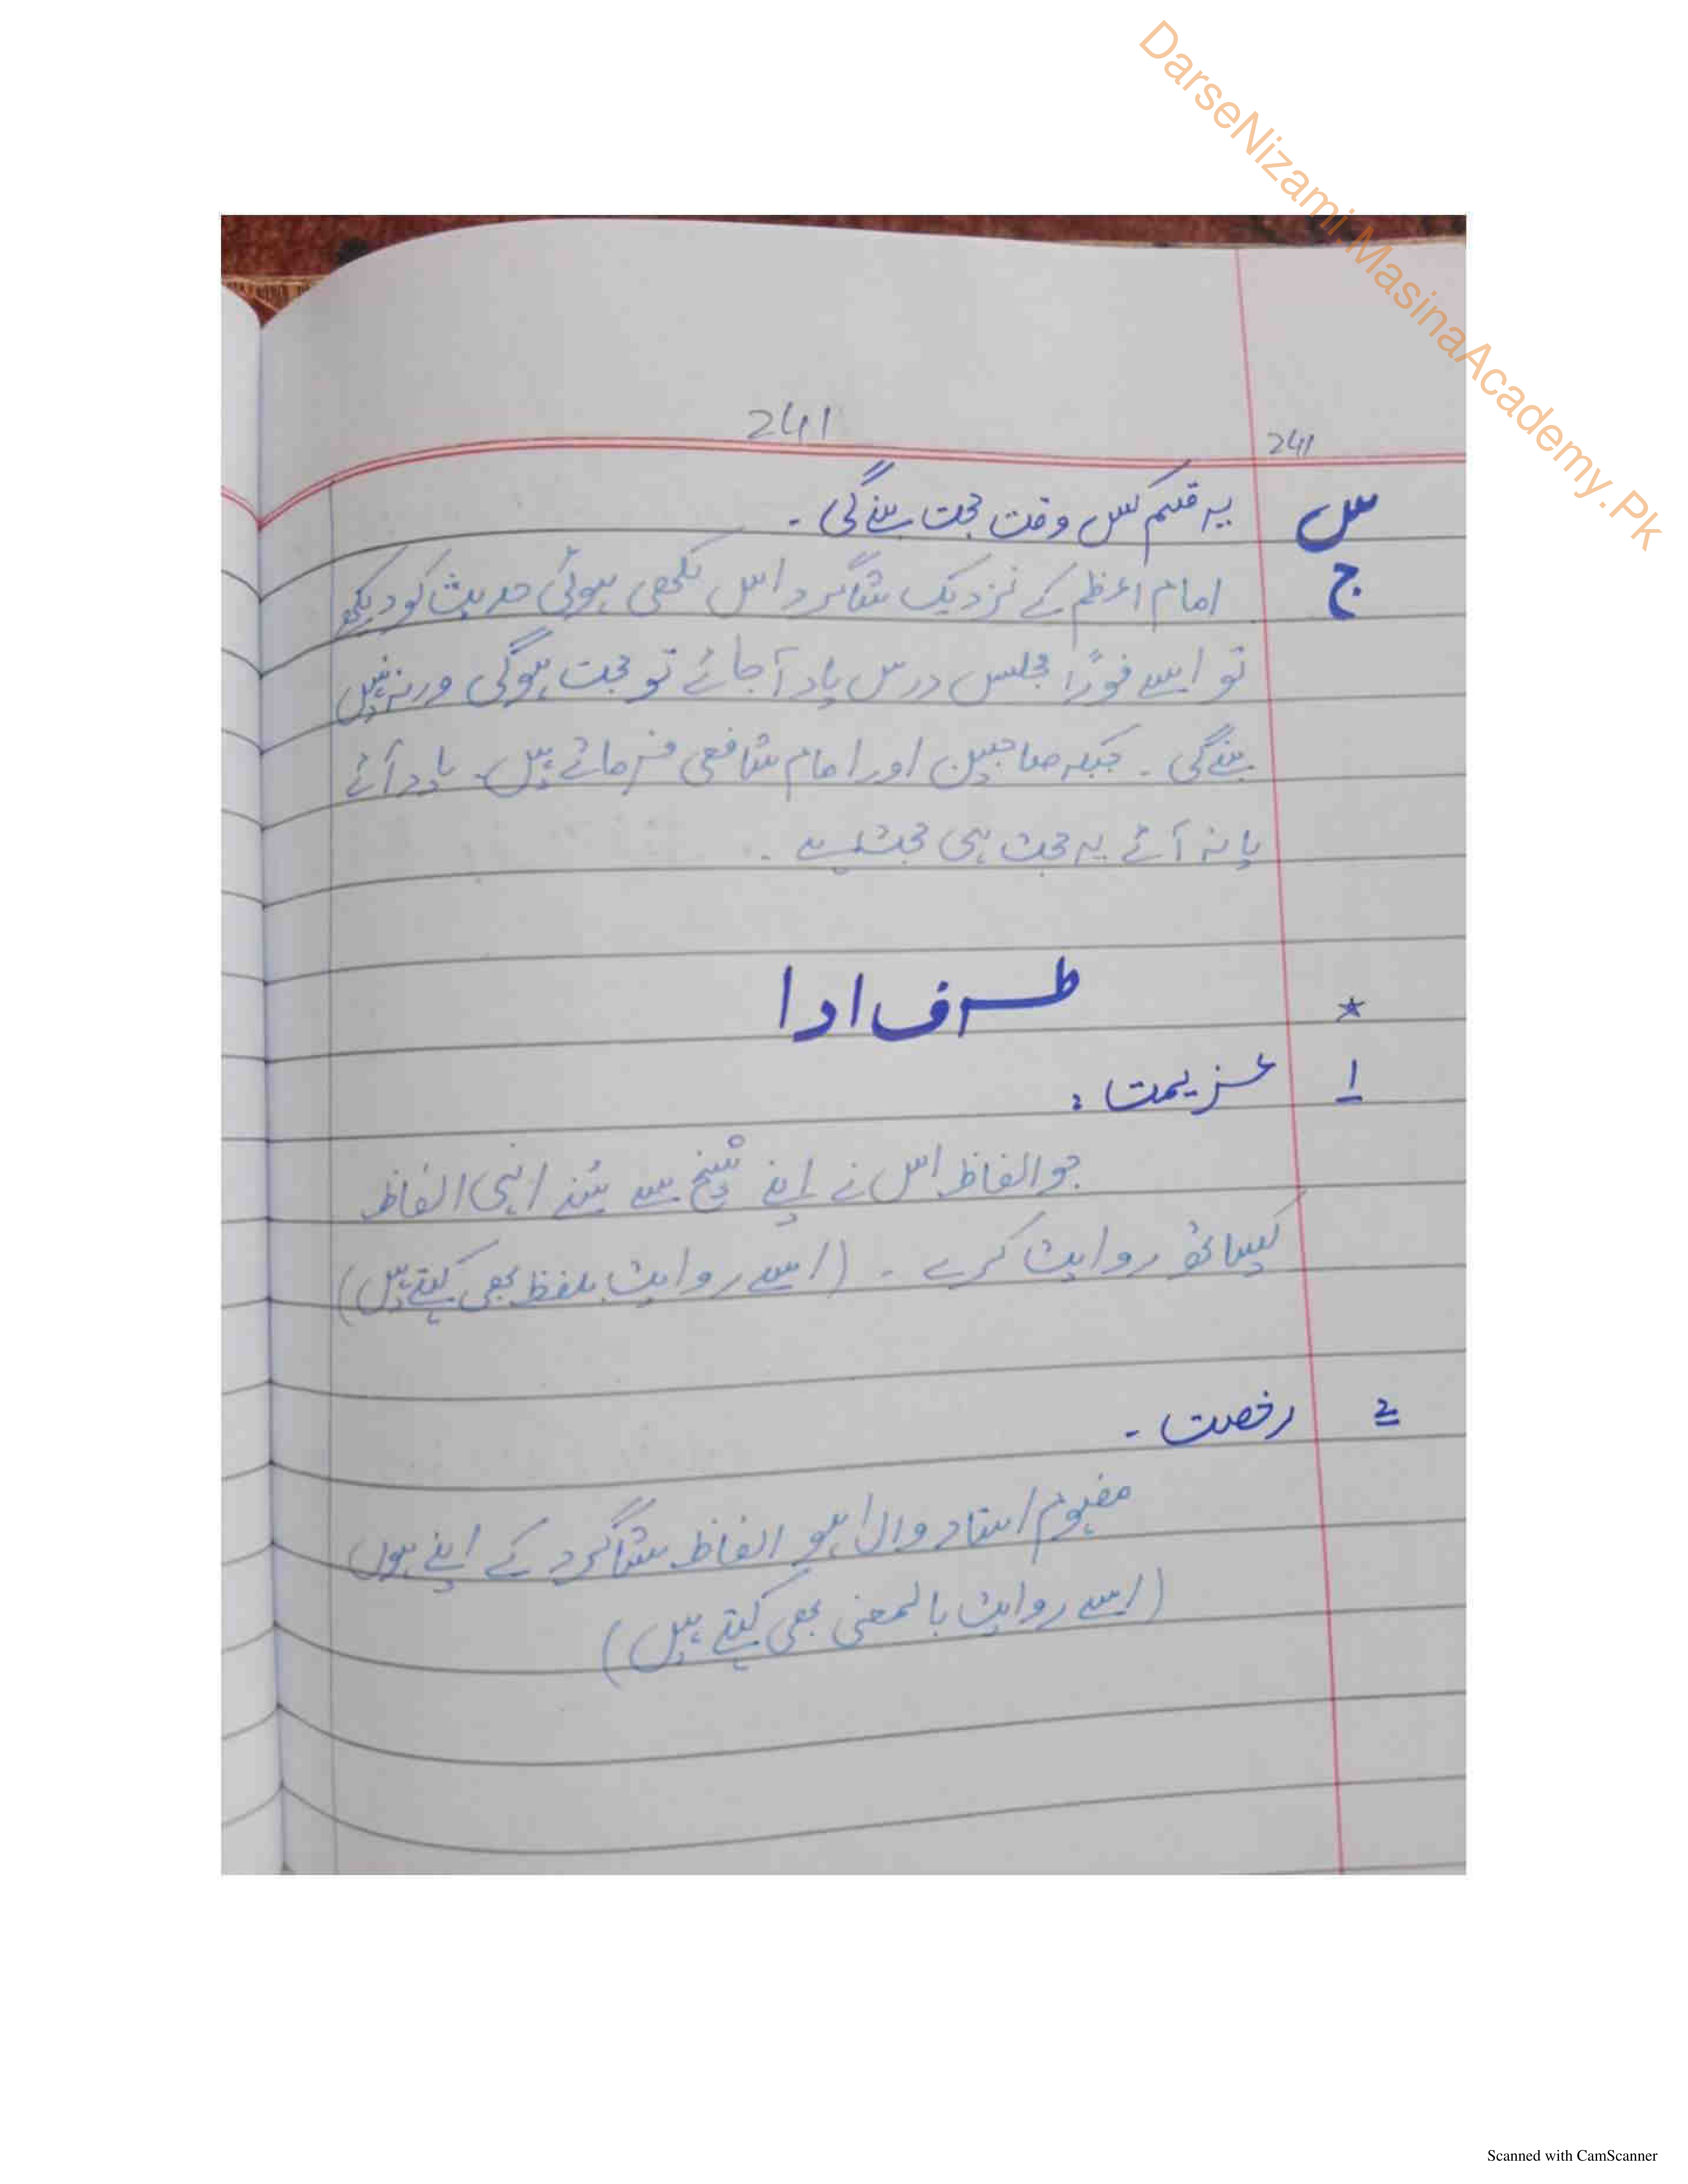 DarseNizami.MasinaAcademy.Pk
241
241
س یہ قسم کس وقت حجت بنےگی۔
ج امام اعظم کے نزدیک شاگرد اس لکھی ہوئی حدیث کو دیکھے
تو اسے فوراً مجلس درس یاد آجائے تو حجت ہوگی ورنہ نہیں
بنےگی۔ جبکہ صاحبین اور امام شافعی فرماتے ہیں۔ یاد آئے
یا نہ آئے یہ حجت ہی حجت ہے۔
★ طرف ادا
1 عزیمت:
جو الفاظ اس نے اپنے شیخ سے سُنے انہی الفاظ
کیساتھ روایت کرے۔ (اسے روایت بلفظ بھی کہتے ہیں)
2 رخصت۔
مفہوم استاد والا ہو الفاظ شاگرد کے اپنے ہوں
(اسے روایت بالمعنی بھی کہتے ہیں)
Scanned with CamScanner